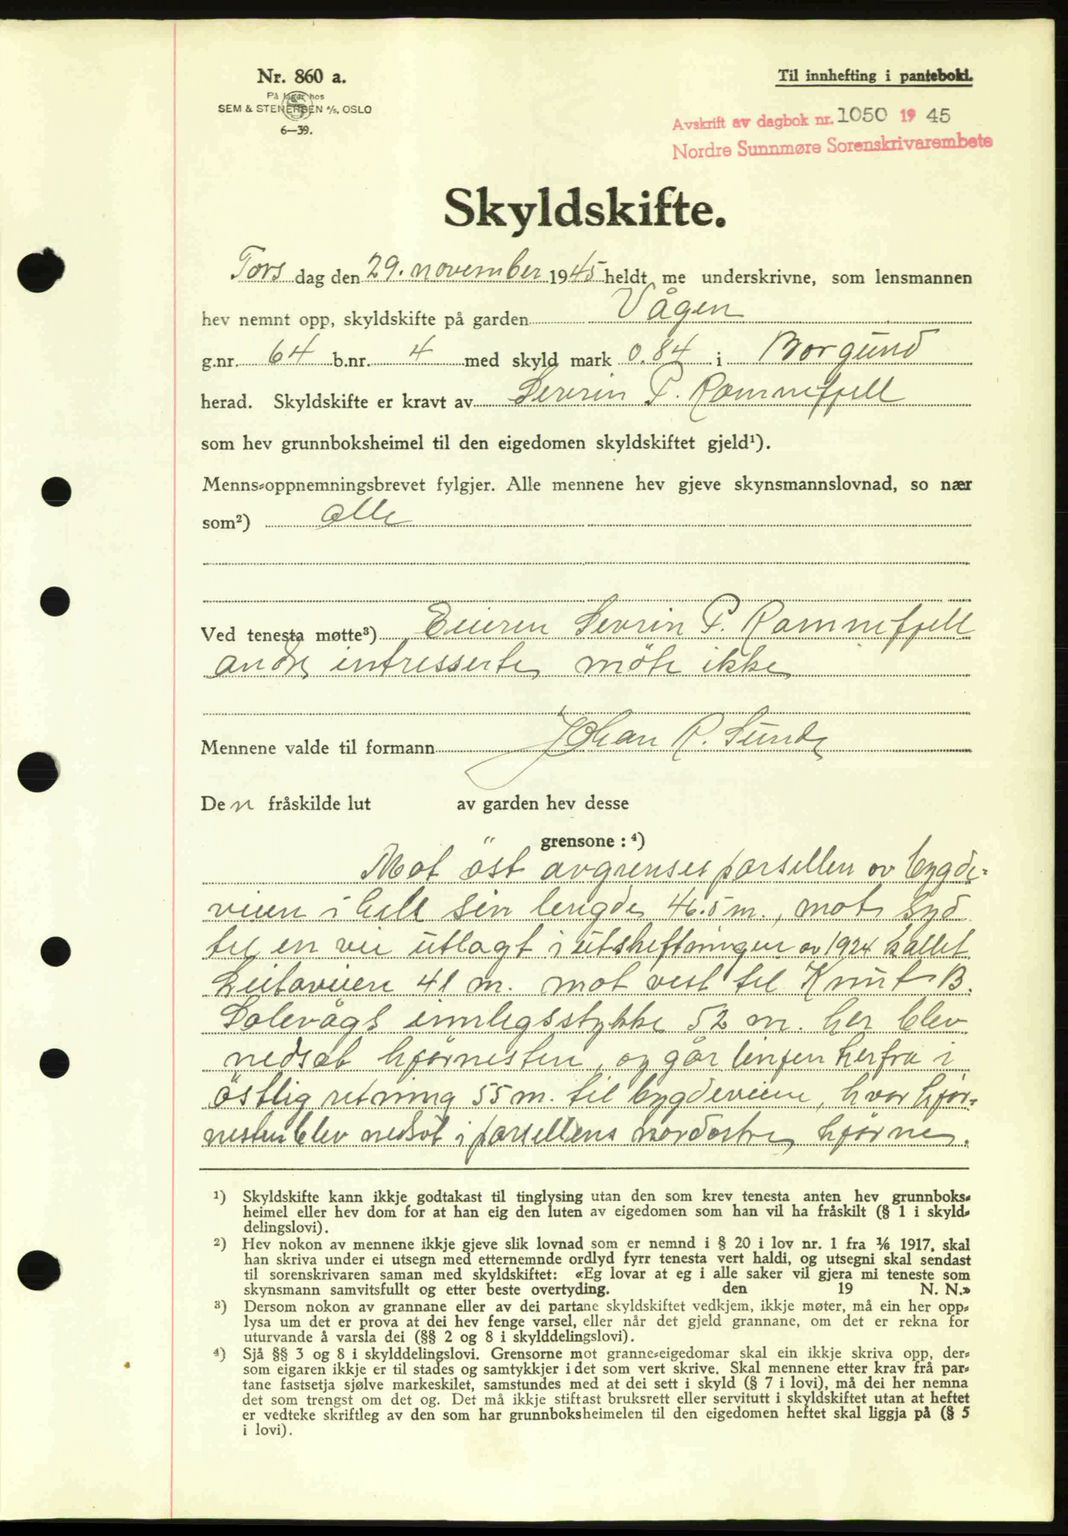 Nr. 860 a.
På lager hos
SEM & STENERSEN A/S, OSLO
6—39.
Til innhefting i pantebok.
Avskrift av dagbok nr. 1050 19 45
Nordre Sunnmøre Sorenskrivarembete
Skyldskifte.
Tors dag den 29. november 1945 heldt me underskrivne, som lensmannen
hev nemnt opp, skyldskifte på garden Vågen
g.nr. 64 b.nr. 4 med skyld mark 0.84 i Borgund
herad. Skyldskifte er kravt av Sevrin P. Ramnefjell
som hev grunnboksheimel til den eigedomen skyldskiftet gjeld¹).
Menns-oppnemningsbrevet fylgjer. Alle mennene hev gjeve skynsmannslovnad, so nær
som²) alle
Ved tenesta møtte³) Eieren Sevrin P. Ramnefjell
andre intresserte møte ikke
Mennene valde til formann Johan R. Sunde
Den fråskilde lut av garden hev desse
grensone : ⁴)
Mot öst avgrenses parsellen av bygde-
veien i hele sin lengde 46.5 m., mot syd
til en vei utlagt i utskiftningen av 1924 kallet
Leitaveien 41 m. mot vest til Knut B.
Solevågs innlegsstykke 52 m. her blev
nedsat hjørnesten, og går linjen herfra i
östlig retning 55 m. til bygdeveien, hvor hjør-
nesten blev nedsat i parsellens nordostre hjørne.
¹) Skyldskifte kann ikkje godtakast til tinglysing utan den som krev tenesta anten hev grunnboks-
heimel eller hev dom for at han eig den luten av eigedomen som han vil ha fråskilt (§ 1 i skyld-
delingslovi).
²) Hev nokon av mennene ikkje gjeve slik lovnad som er nemnd i § 20 i lov nr. 1 fra 1/6 1917, skal
han skriva under ei utsegn med etternemnde ordlyd fyrr tenesta vert haldi, og utsegni skal sendast
til sorenskrivaren saman med skyldskiftet: «Eg lovar at eg i alle saker vil gjera mi teneste som
skynsmann samvitsfullt og etter beste overtyding. den 19 N. N.»
³) Dersom nokon av grannane eller av dei partane skyldskiftet vedkjem, ikkje møter, må ein her opp-
lysa um det er prova at dei hev fenge varsel, eller når det gjeld grannane, om det er rekna for
uturvande å varsla dei (§§ 2 og 8 i skylddelingslovi).
⁴) Sjå §§ 3 og 8 i skylddelingslovi. Grensorne mot granne-eigedomar skal ein ikkje skriva opp, der-
som eigaren ikkje er til stades og samtykkjer i det som vert skrive. Skal mennene etter krav frå par-
tane fastsetja sjølve markeskilet, samstundes med at dei sett i skyld (§ 7 i lovi), må dei her nemna
det som trengst om det og. Det må ikkje stiftast bruksrett eller servitutt i skyldskiftet utan at heftet
er vedteke skriftleg av den som har grunnboksheimelen til den eigedomen heftet skal liggja på (§ 5
i lovi).